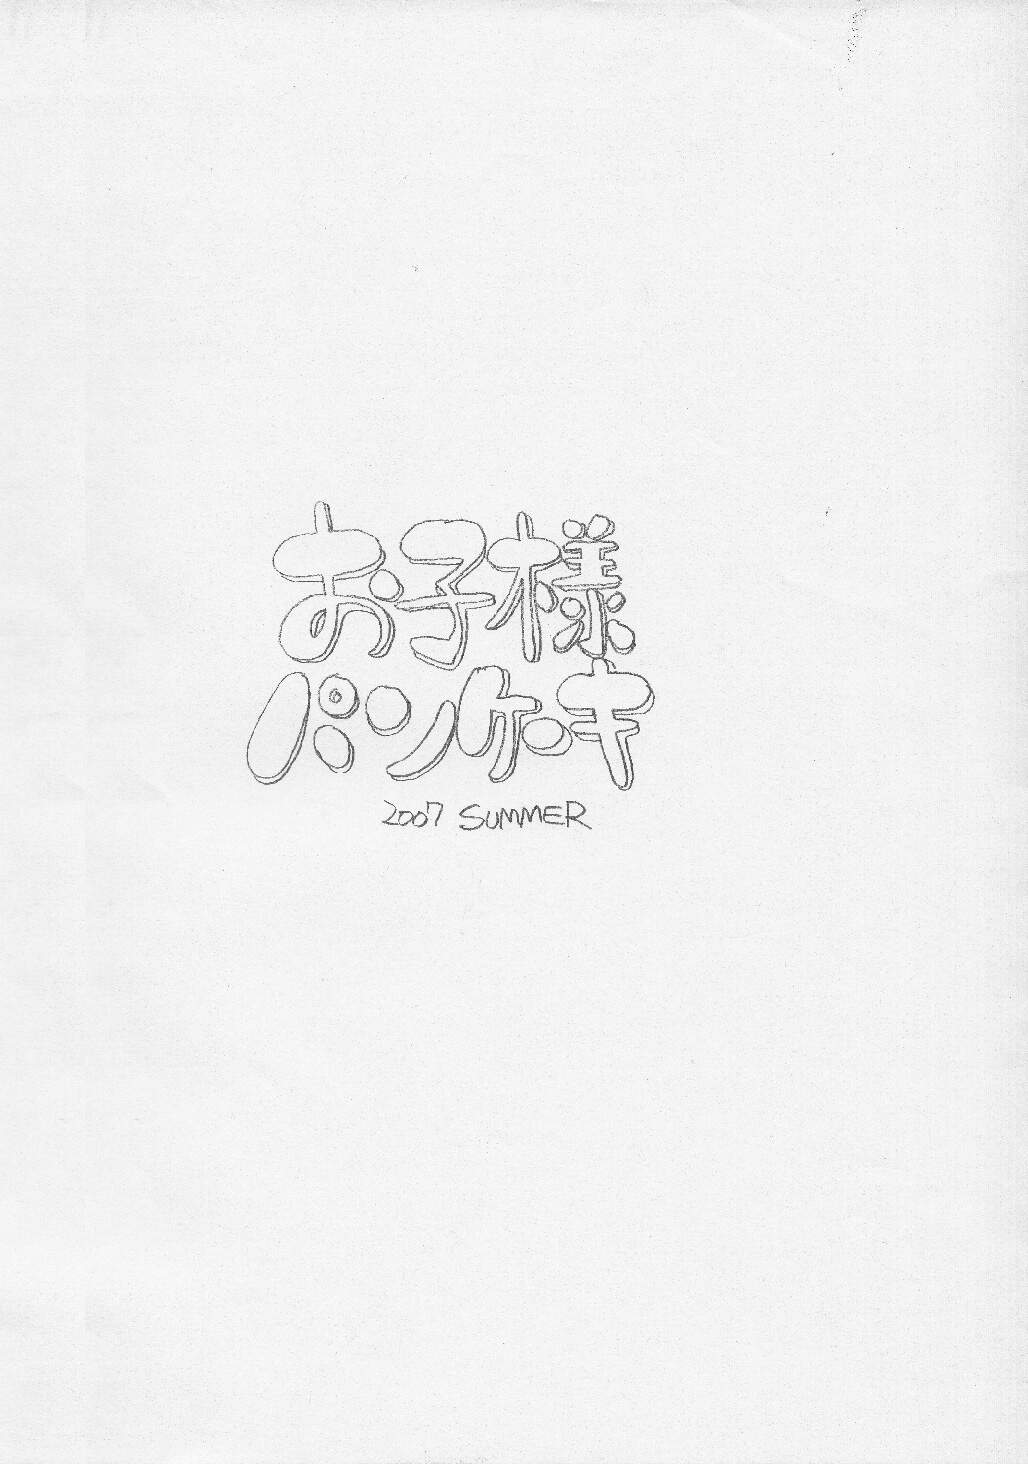 お子様
パンケーキ
2007 SUMMER